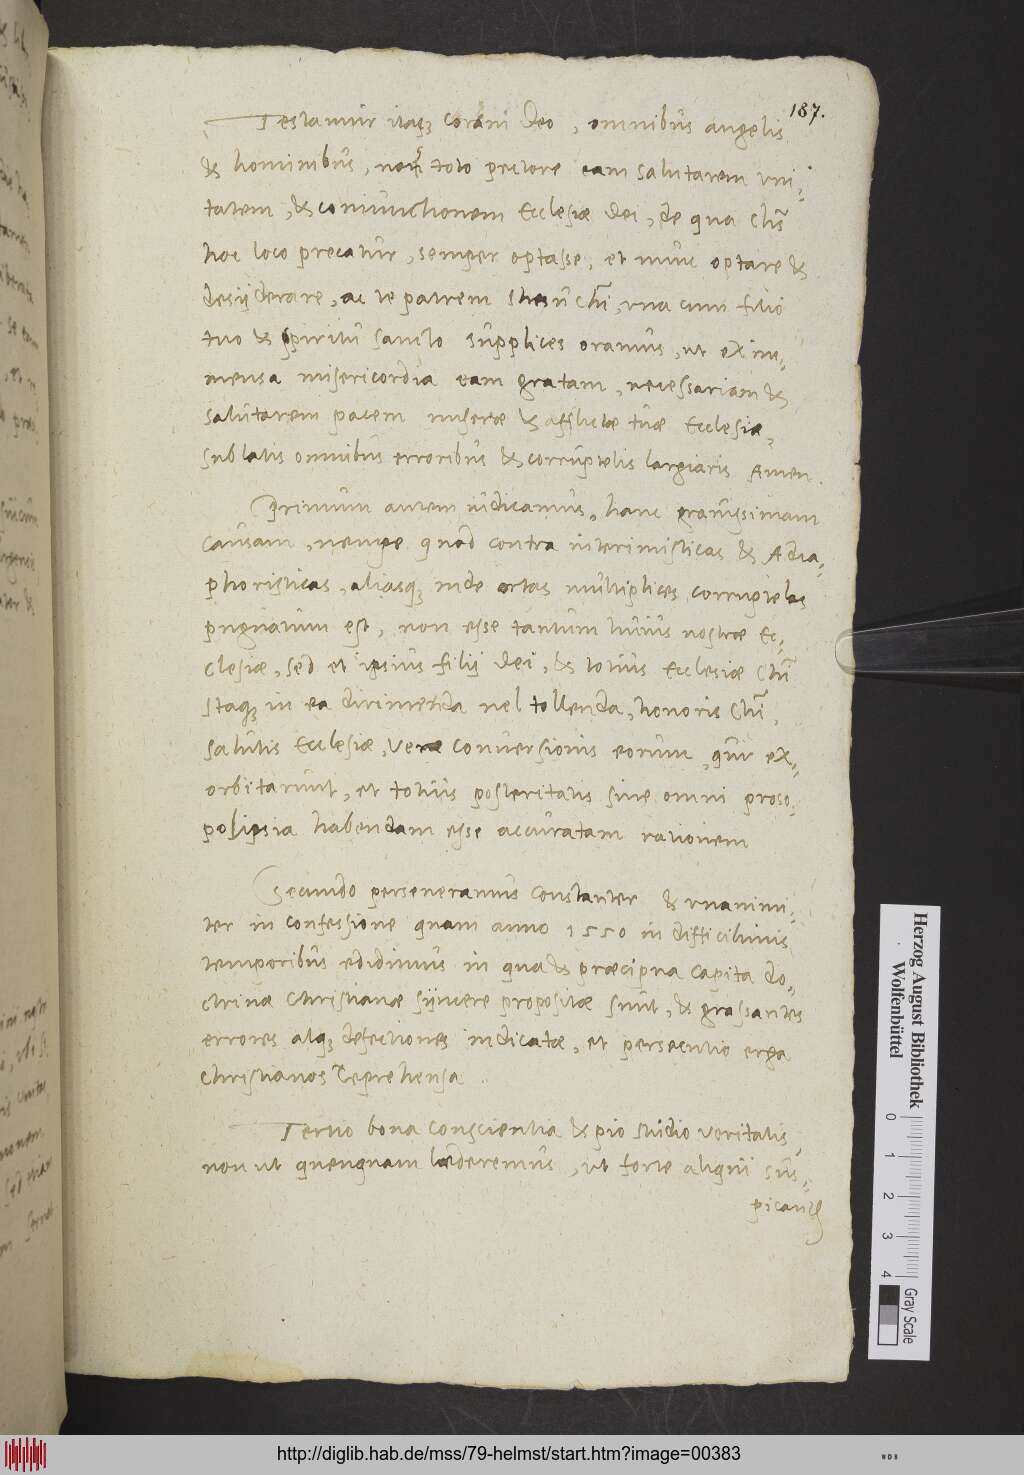 187.
Testamur itaq₃ coram Deo, omnibus angelis
& hominibus, nos toto pectore eam salutarem vni-
tatem, & coniunctionem Ecclesiæ Dei, de qua Chūs
hoc loco precatur, semper optasse, et nunc optare &
desyderare, ac te patrem Ihesu Chri, vna cum filio
tuo & spiritu sancto supplices oramus, ut ex im-
mensa misericordia eam gratam, necessariam &
salutarem pacem miseræ & afflictæ tuæ Ecclesiæ,
sublatis omnibus erroribus & corruptelis largiaris Amen.
Primum autem iudicamus, hanc grauissimam
causam, nempe quod contra interimisticas & Adia-
phoristicas, aliasq₃ inde ortas multiplices corruptelas
pugnatum est, non esse tantum huius nostræ Ec-
clesiæ, sed et ipsius filij Dei, & totius Ecclesiæ Chri
Itaq₃ in ea dirimenda uel tollenda, honoris Chri,
salutis Ecclesiæ, veræ conuersionis eorum, qui ex-
orbitarunt, et totius posteritatis sine omni proso
polipsia habendam esse accuratam rationem
Secundo perseueramus constanter & vnanimi-
ter in confessione quam anno 1550 in difficilimis
temporibus edidimus in qua & præcipua capita do-
ctrinæ Christianæ syncere propositæ sunt, & grassantes
errores atq₃ defectiones indicatæ, et persecutio erga
Christianos reprehensa.
Tertio bona conscientia & pio studio veritatis,
non ut quenquam læderemus, ut forte aliqui sus-
picant
Herzog August Bibliothek
Wolfenbüttel
0 1 2 3 4
Gray Scale
http://diglib.hab.de/mss/79-helmst/start.htm?image=00383